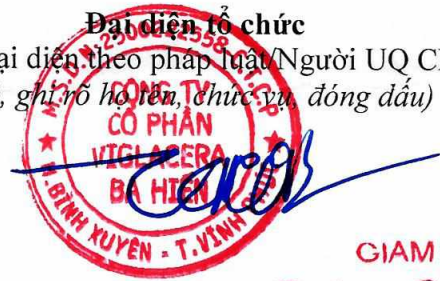 Đại diện tổ chức
ại diện theo pháp luật/Người UQ C
, ghi rõ họ tên, chức vụ, đóng dấu)
CÔNG TY
CỔ PHẦN
VIGLACERA
BÁ HIẾN
H. BÌNH XUYÊN - T. VĨNH
GIAM